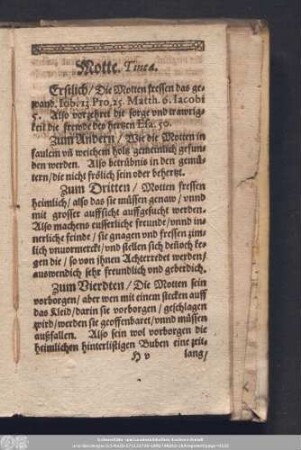 Motte. Tinea.
Erstlich/Die Motten fressen das ge-
wand. Iob. 13 Pro. 25 Matth. 6. Iacobi
5. Also vorzehret die sorge vnd trawrig-
keit die frewde des hertzen Esa. 50.
Zum Andern/Wie die Motten in
faulem vñ weichem holtz gemeinlich gefun-
den werden. Also betrübnis in den gemü-
tern/die nicht frölich sein oder behertzt.
Zum Dritten/Motten fressen
heimlich/also das sie müssen genaw/vnnd
mit grosser auffsicht auffgesucht werden.
Also machens eusserliche freunde/vnnd in-
nerliche feinde/sie gnagen vnd fressen zim-
lich vnuormerckt/vnd stellen sich deñoch ke-
gen die/so von jhnen Achterredet werden/
auswendich sehr freundlich vnd geberdich.
Zum Vierdten/Die Motten sein
vorborgen/aber wen mit einem stecken auff
das Kleid/darin sie vorborgen/geschlagen
wird/werden sie geoffenbaret/vnnd müssen
außfallen. Also sein wol vorborgen die
heimlichen hinterlistigen Buben eine zeit-
H v lang/